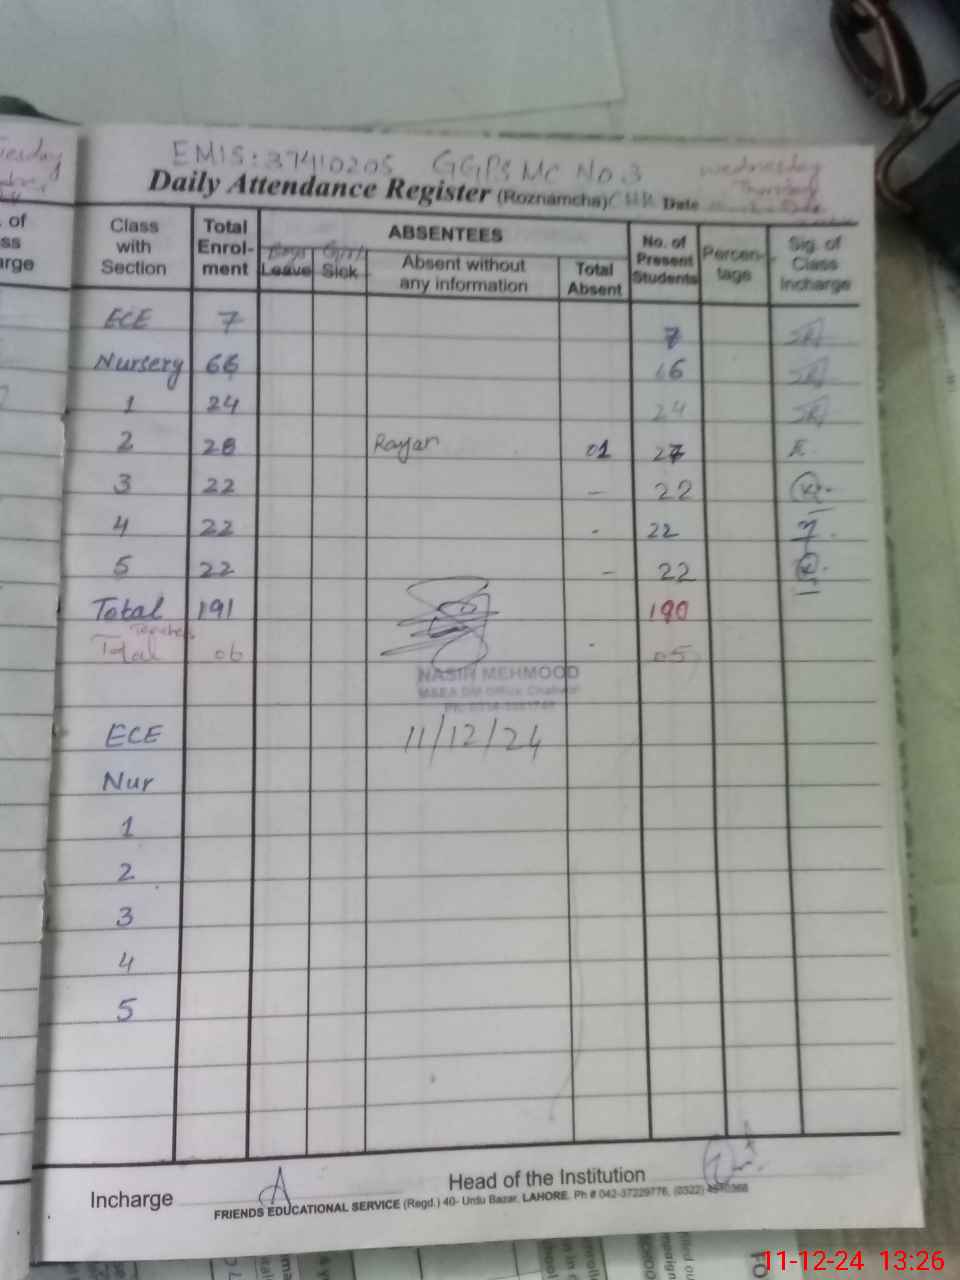 EMIS: 37410205 GGPS MC No.3 wednesday
Thursday
Daily Attendance Register (Roznamcha) Date
Class with Section Total Enrol-ment ABSENTEES No. of Present Students Percen-tage Sig. of Class Incharge
Boys Girls
Leave Sick Absent without any information Total Absent
ECE 7 7
Nursery 66 66
1 24 24
2 28 Rayan 01 27
3 22 - 22
4 22 - 22
5 22 - 22
Total 191 190
Teachers
Total 06 - 05
NASIR MEHMOOD
ECE 11/12/24
Nur
1
2
3
4
5
Incharge Head of the Institution
FRIENDS EDUCATIONAL SERVICE (Regd.) 40- Urdu Bazar, LAHORE. Ph # 042-37229776, (0322)
11-12-24 13:26